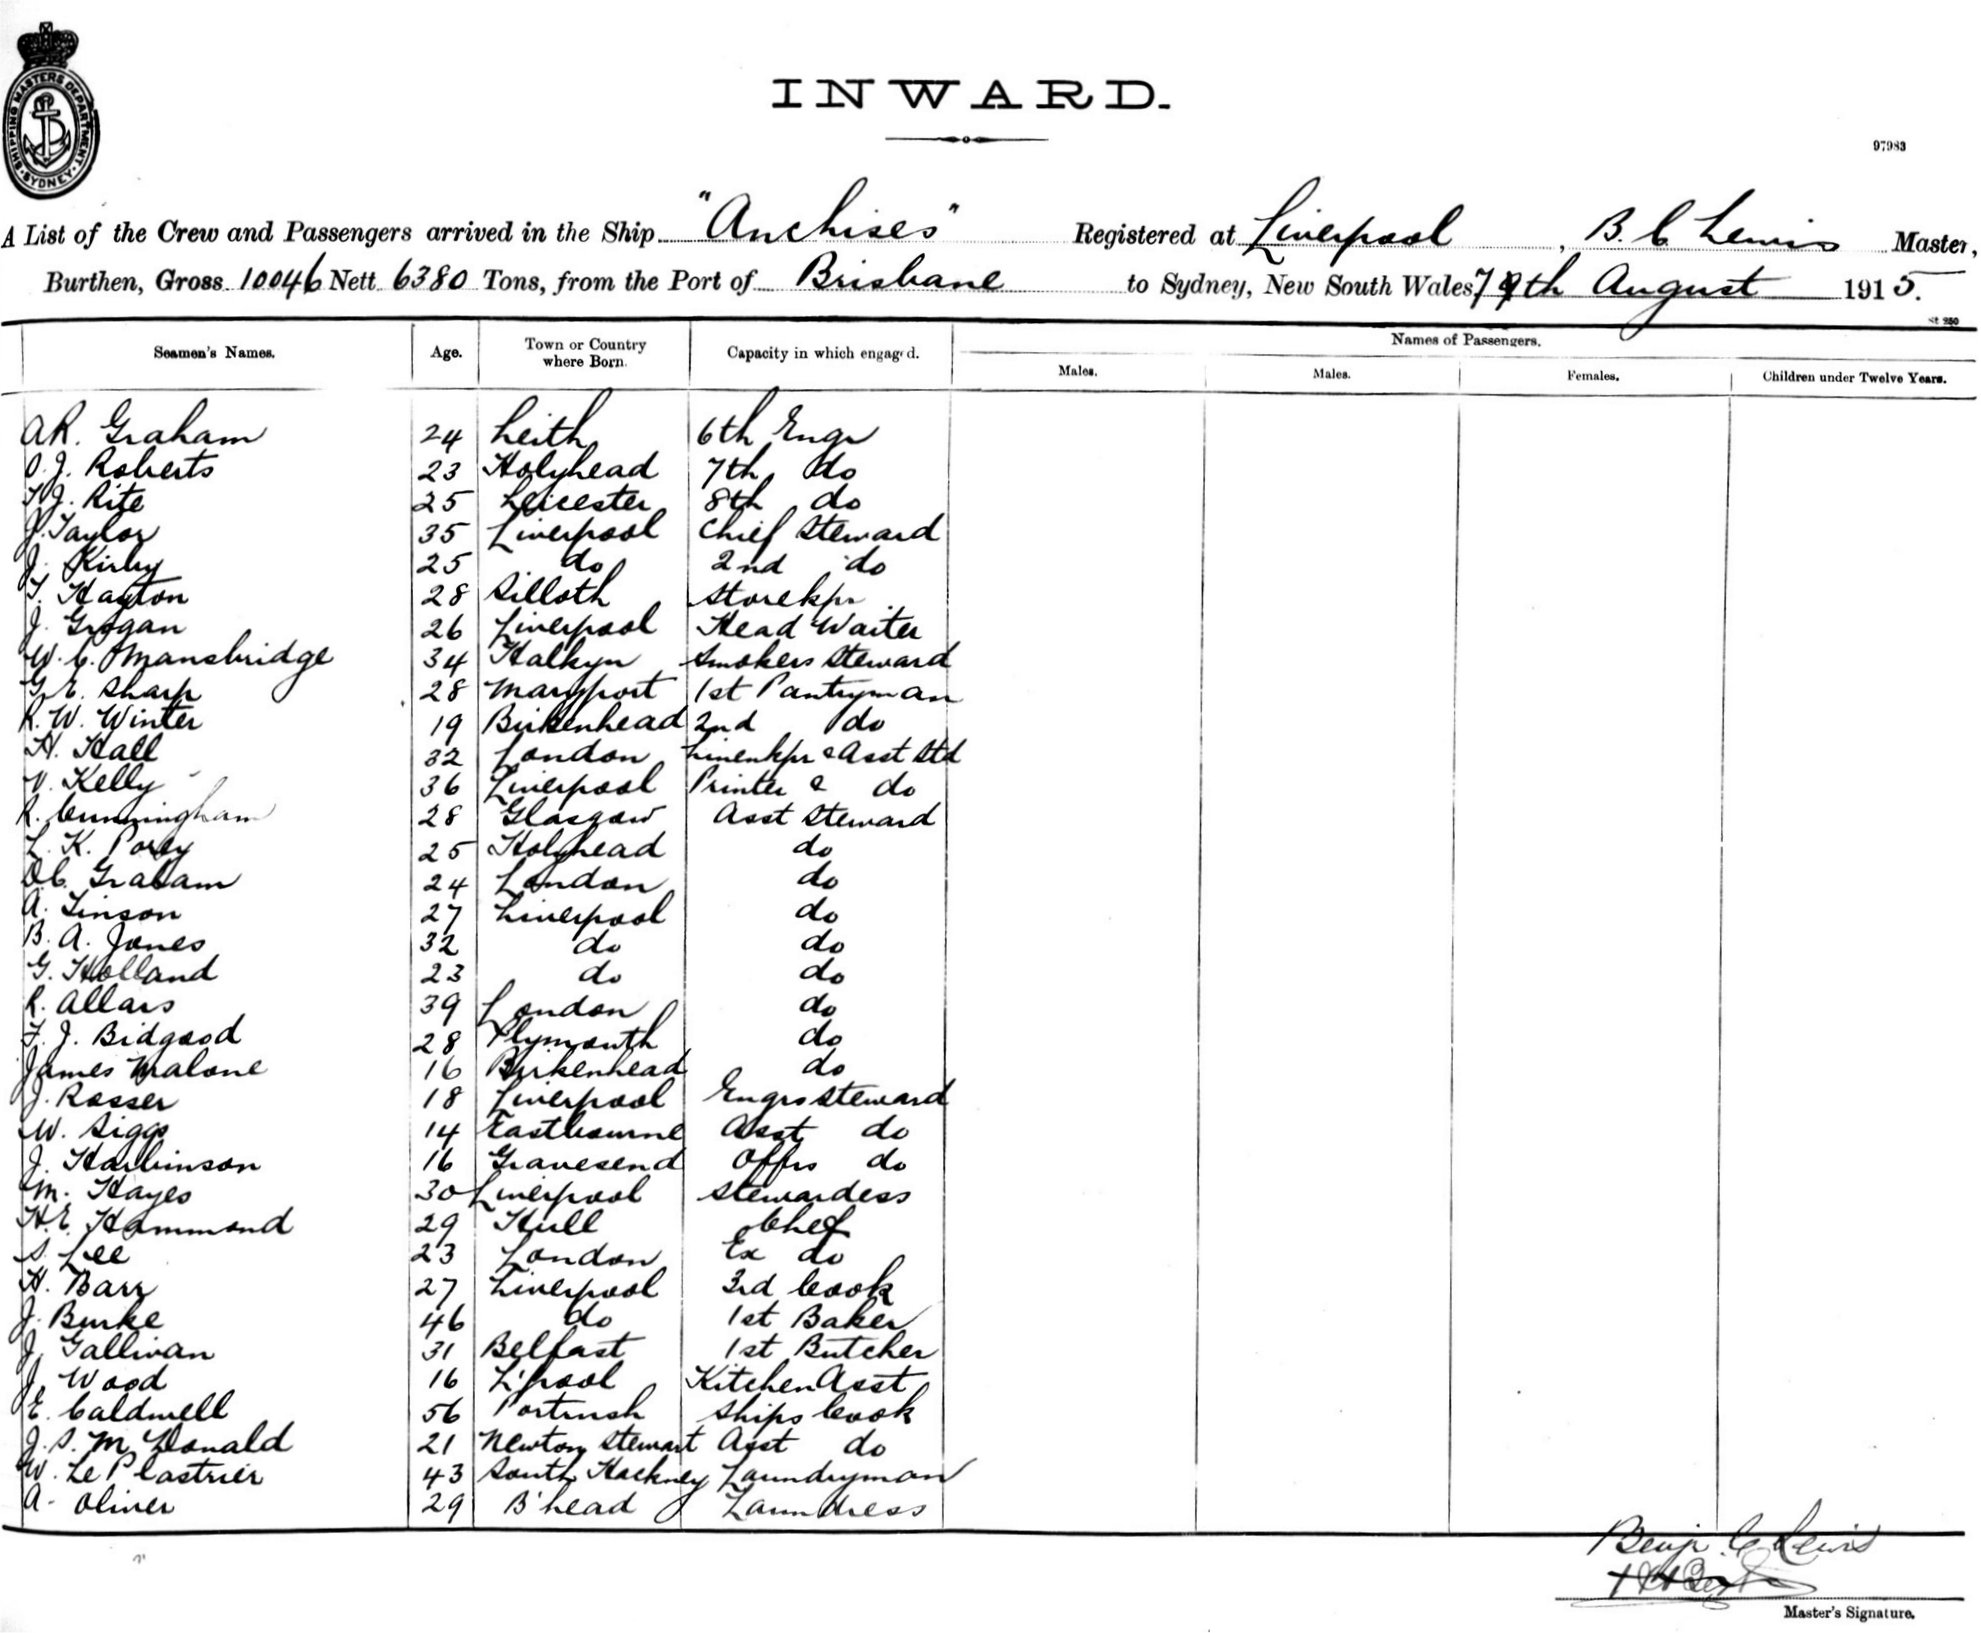 SHIPPING MASTERS DEPARTMENT. SYDNEY.
INWARD.
97983
A List of the Crew and Passengers arrived in the Ship "Anchises" Registered at Liverpool, B. C. Lewis Master,
Burthen, Gross 10046 Nett 6380 Tons, from the Port of Brisbane to Sydney, New South Wales, 7th August 1915.
St 250
Seamen's Names. Age. Town or Country where Born. Capacity in which engaged. Names of Passengers.
Males. Males. Females. Children under Twelve Years.
A R. Graham 24 Leith 6th Engr
O. J. Roberts 23 Holyhead 7th do
T J. Rite 25 Leicester 8th do
J. Taylor 35 Liverpool Chief Steward
J. Kirby 25 do 2nd do
T. Hayton 28 Silloth Storekpr
J. Grogan 26 Liverpool Head Waiter
W. C. Mansbridge 34 Halkyn Smokers Steward
G. E. Sharp 28 Maryport 1st Pantryman
R. W. Winter 19 Birkenhead 2nd do
H. Hall 32 London Linenkpr & Asst Std
V. Kelly 36 Liverpool Printer & do
R. Cunningham 28 Glasgow Asst Steward
L. K. 25 Holyhead do
Graham 24 London do
A. Linson 27 Liverpool do
B. A. Jones 32 do do
G. Holland 23 do do
R. Allars 39 London do
F. J. Bidgood 28 Plymouth do
James Malone 16 Birkenhead do
J. Rosser 18 Liverpool Engrs Steward
W. Siggs 14 Eastbourne Asst do
J. Harbinson 16 Gravesend Offrs do
M. Hayes 30 Liverpool Stewardess
H. E. Hammond 29 Hull Chef
S. Lee 23 London Ex do
H. Barr 27 Liverpool 3rd Cook
J. Burke 46 do 1st Baker
J. Gallivan 31 Belfast 1st Butcher
J. Wood 16 L'pool Kitchen Asst
E. Caldwell 56 Portrush Ships Cook
J. S. McDonald 21 Newton Stewart Asst do
W. Le Plastrier 43 South Hackney Laundryman
A. Oliver 29 B'head Laundress
Benj. C Lewis
Master's Signature.